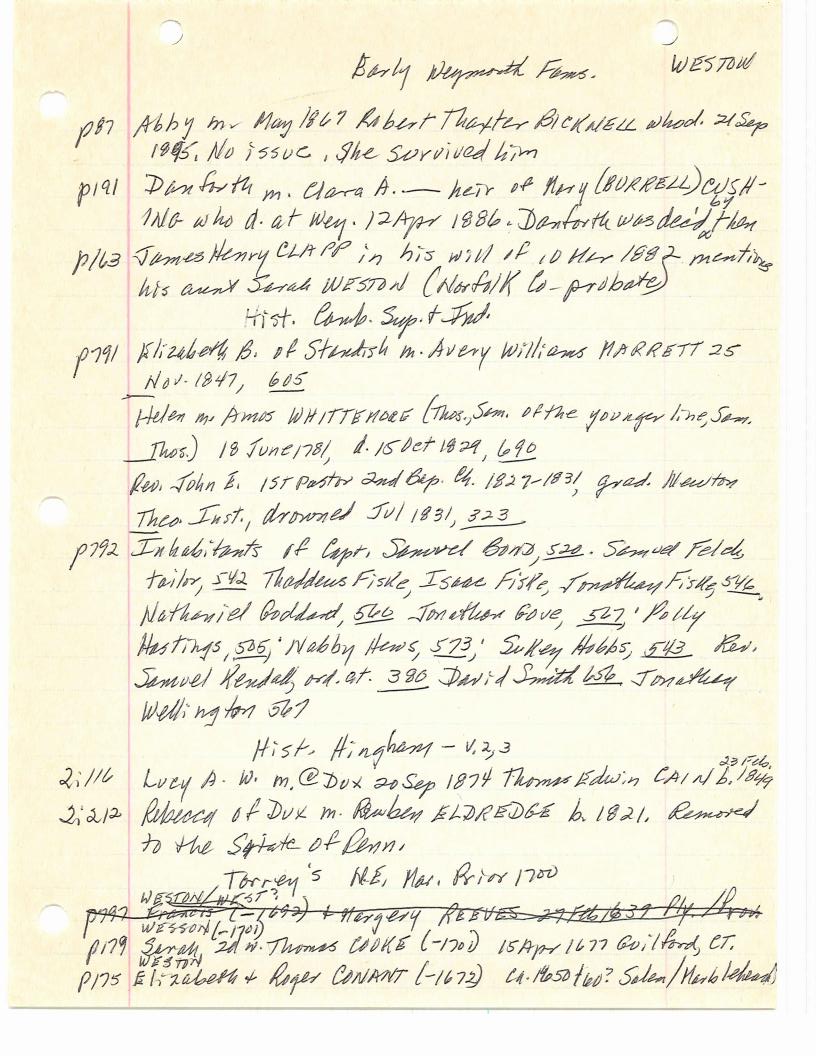 Early Weymouth Fams. WESTON
p87 Abby m. May 1867 Robert Thaxter BICKNELL who d. 21 Sep
1895. No issue. She survived him
p191 Danforth m. Clara A. — heir of Mary (BURRELL) CUSH-
ING who d. at Wey. 12 Apr 1886. Danforth was dec'd by then
p163 James Henry CLAPP in his will of 10 Mar 1882 mentions
his aunt Sarah WESTON (Norfolk Co-probate)
Hist. Camb. Sup. & Ind.
p791 Elizabeth B. of Standish m. Avery Williams MARRETT 25
Nov. 1847, 605
Helen m. Amos WHITTEMORE (Thos., Sam. of the younger line, Sam.
Thos.) 18 June 1781, d. 15 Oct 1829, 690
Rev. John E. 1st Pastor 2nd Bap. Ch. 1827-1831, grad. Newton
Theo. Inst., drowned Jul 1831, 323
p792 Inhabitants of Capt. Samuel Bond, 520. Samuel Felch,
tailor, 542 Thaddeus Fiske, Isaac Fiske, Jonathan Fiske, 546,
Nathaniel Goddard, 560 Jonathan Gove, 567; Polly
Hastings, 505; Nabby Hews, 573; Sukey Hobbs, 543 Rev.
Samuel Kendall, ord. at. 380 David Smith 656 Jonathan
Wellington 567
Hist. Hingham - v. 2, 3
2:116 Lucy A. W. m. @ Dux 20 Sep 1874 Thomas Edwin CAIN b. 23 Feb. 1849
2:212 Rebecca of Dux m. Reuben ELDREDGE b. 1821. Removed
to the State of Penn.
Torrey's N.E. Mar. Prior 1700
WESTON/WEST?
p797 Francis (-1692) & Margery REEVES 27 Feb 1639 Ply./Prov
WESSON (-1701)
p179 Sarah 2d w. Thomas COOKE (-1701) 15 Apr 1677 Guilford, CT.
WESTON
p175 Elizabeth & Roger CONANT (-1672) ca. 1650/60? Salem/Marblehead